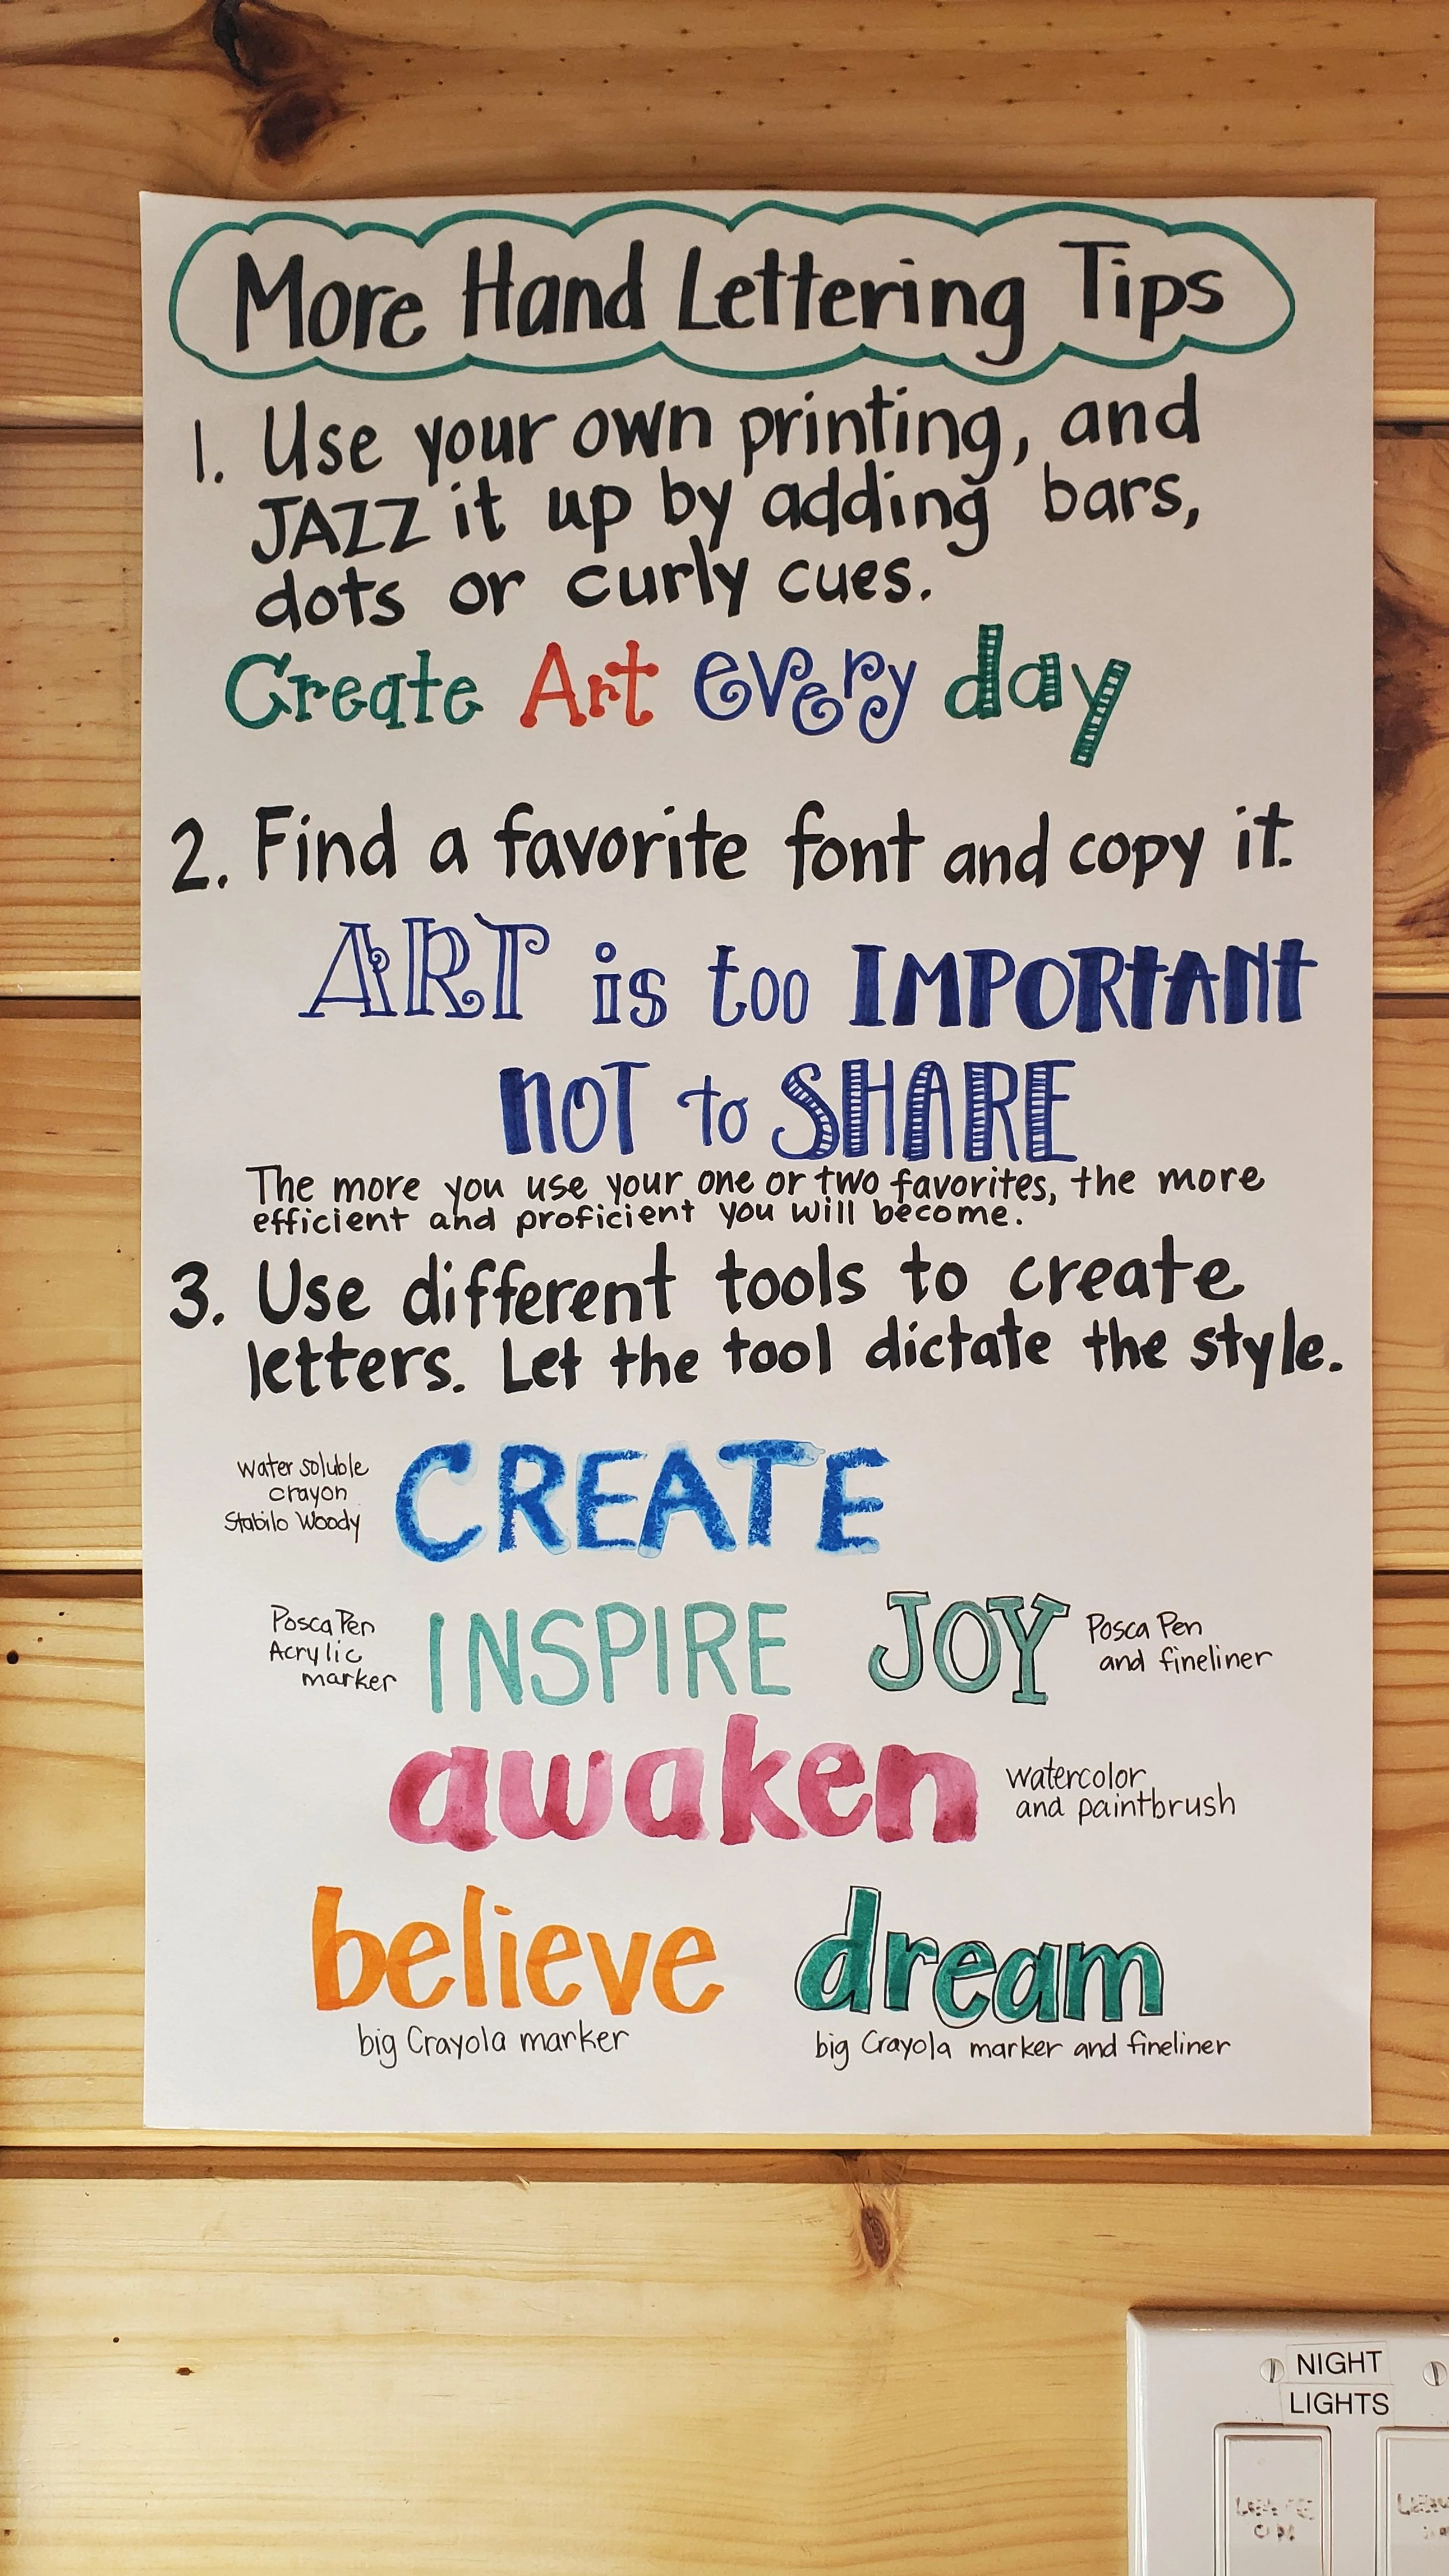 More Hand Lettering Tips
1. Use your own printing, and
JAZZ it up by adding bars,
dots or curly cues.
Create Art every day
2. Find a favorite font and copy it.
ART is too IMPORTANT
NOT to SHARE
The more you use your one or two favorites, the more
efficient and proficient you will become.
3. Use different tools to create
letters. Let the tool dictate the style.
water soluble
crayon
Stabilo Woody
CREATE
Posca Pen
Acrylic
marker
INSPIRE
JOY
Posca Pen
and fineliner
awaken
watercolor
and paintbrush
believe
big Crayola marker
dream
big Crayola marker and fineliner
NIGHT
LIGHTS